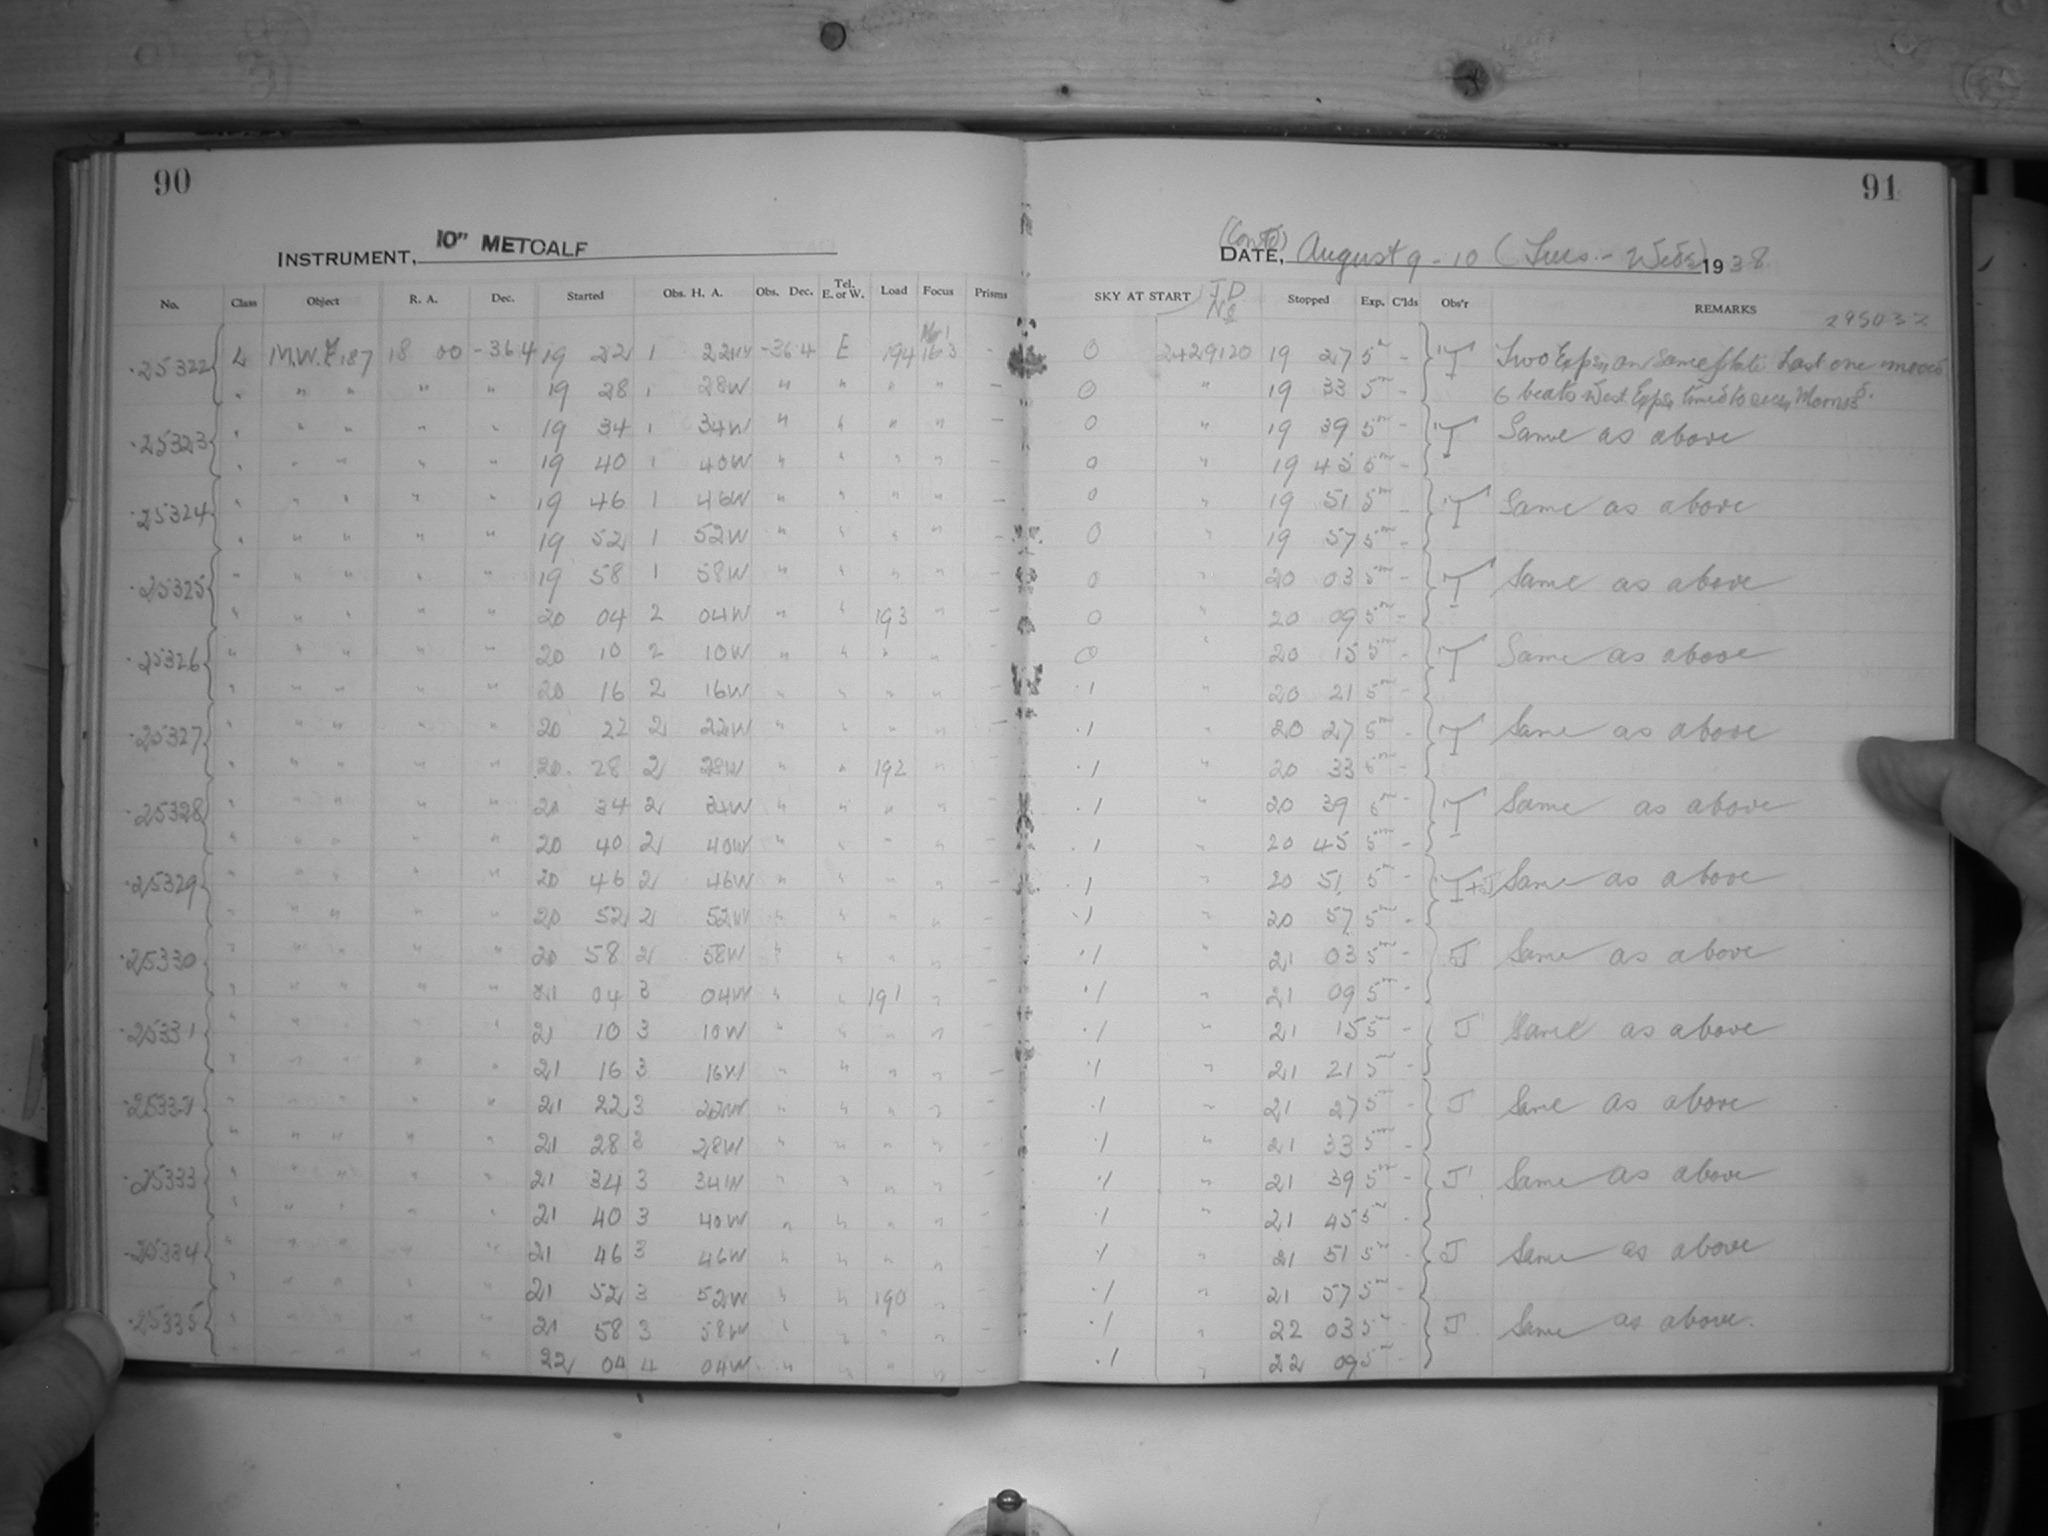 90
91
INSTRUMENT, 10" METCALF
(Cont'd)
DATE, August 9-10 (Tues. - Weds) 1938
No. Class Object R. A. Dec. Started Obs. H. A. Obs. Dec. Tel. E. or W. Load Focus Prisms SKY AT START J D No Stopped Exp. C'lds Obs'r REMARKS 295032
25322 L M.W.F. 187 18 00 -36.4 19 22 1 22W -36.4 E 194 16.3 - 0 2429120 19 27 5m - T Two Exps. on same plate. Last one moved
" " " " " 19 28 1 28W " " " " - 0 " 19 33 5m - 6 beats West Exps. timed to
25323 " " " " " 19 34 1 34W " " " " - 0 " 19 39 5m - T Same as above
" " " " " 19 40 1 40W " " " " - 0 " 19 45 5m -
25324 " " " " " 19 46 1 46W " " " " - 0 " 19 51 5m - T Same as above
" " " " " 19 52 1 52W " " " " - 0 " 19 57 5m -
25325 " " " " " 19 58 1 58W " " " " - 0 " 20 03 5m - T Same as above
" " " " " 20 04 2 04W " " 193 " - 0 " 20 09 5m -
25326 " " " " " 20 10 2 10W " " " " - 0 " 20 15 5m - T Same as above
" " " " " 20 16 2 16W " " " " - .1 " 20 21 5m -
25327 " " " " " 20 22 2 22W " " " " - .1 " 20 27 5m - T Same as above
" " " " " 20 28 2 28W " " 192 " - .1 " 20 33 5m -
25328 " " " " " 20 34 2 34W " " " " - .1 " 20 39 5m - T Same as above
" " " " " 20 40 2 40W " " " " - .1 " 20 45 5m -
25329 " " " " " 20 46 2 46W " " " " - .1 " 20 51 5m - T+J Same as above
" " " " " 20 52 2 52W " " " " - .1 " 20 57 5m -
25330 " " " " " 20 58 2 58W " " " " - .1 " 21 03 5m - J Same as above
" " " " " 21 04 3 04W " " 191 " - .1 " 21 09 5m -
25331 " " " " " 21 10 3 10W " " " " - .1 " 21 15 5m - J Same as above
" " " " " 21 16 3 16W " " " " - .1 " 21 21 5m -
25332 " " " " " 21 22 3 22W " " " " - .1 " 21 27 5m - J Same as above
" " " " " 21 28 3 28W " " " " - .1 " 21 33 5m -
25333 " " " " " 21 34 3 34W " " " " - .1 " 21 39 5m - J Same as above
" " " " " 21 40 3 40W " " " " - .1 " 21 45 5m -
25334 " " " " " 21 46 3 46W " " " " - .1 " 21 51 5m - J Same as above
" " " " " 21 52 3 52W " " 190 " - .1 " 21 57 5m -
25335 " " " " " 21 58 3 58W " " " " - .1 " 22 03 5m - J Same as above.
" " " " " 22 04 4 04W " " " " - .1 " 22 09 5m -